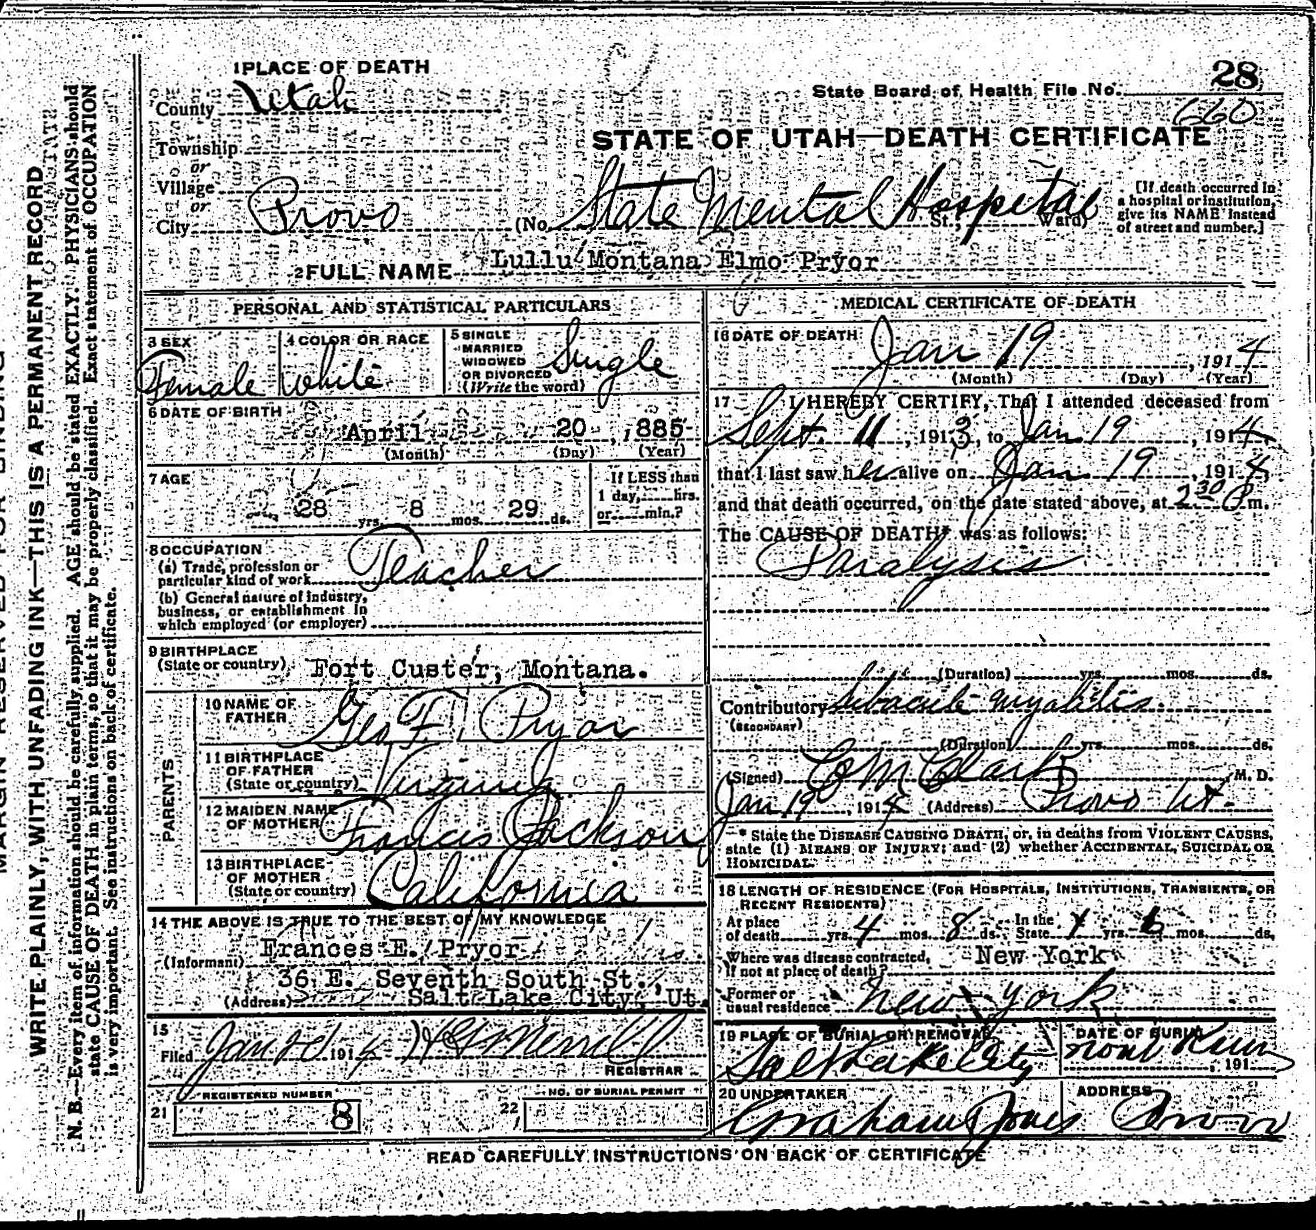 1 PLACE OF DEATH
County Utah
State Board of Health File No. 28
660
STATE OF UTAH—DEATH CERTIFICATE
Township
or
Village
or
City Provo (No. State Mental Hospital St.; Ward)
[If death occurred in a hospital or institution, give its NAME instead of street and number.]
2 FULL NAME Lullu Montana Elmo Pryor
PERSONAL AND STATISTICAL PARTICULARS
3 SEX Female
4 COLOR OR RACE White
5 SINGLE MARRIED WIDOWED OR DIVORCED (Write the word) Single
6 DATE OF BIRTH
April 20, 1885
(Month) (Day) (Year)
7 AGE
28 yrs. 8 mos. 29 ds.
If LESS than 1 day, hrs. or min.?
8 OCCUPATION
(a) Trade, profession or particular kind of work Teacher
(b) General nature of industry, business, or establishment in which employed (or employer)
9 BIRTHPLACE
(State or country) Fort Custer, Montana.
PARENTS
10 NAME OF FATHER Geo F Pryor
11 BIRTHPLACE OF FATHER (State or country) Virginia
12 MAIDEN NAME OF MOTHER Francis Jackson
13 BIRTHPLACE OF MOTHER (State or country) California
14 THE ABOVE IS TRUE TO THE BEST OF MY KNOWLEDGE
(Informant) Frances E. Pryor
36 E. Seventh South St.,
(Address) Salt Lake City, Ut.
15
Filed Jan 1914
REGISTRAR
REGISTERED NUMBER
21 8
NO. OF BURIAL PERMIT
22
MEDICAL CERTIFICATE OF DEATH
16 DATE OF DEATH Jan 19, 1914
(Month) (Day) (Year)
17 I HEREBY CERTIFY, That I attended deceased from
Sept. 11, 1913, to Jan 19, 1914
that I last saw her alive on Jan 19, 1914
and that death occurred, on the date stated above, at 2 30 P m.
The CAUSE OF DEATH* was as follows:
Paralysis
(Duration) yrs. mos. ds.
Contributory Subacute myelitis
(SECONDARY)
(Duration) yrs. mos. ds.
(Signed) Clark, M. D.
Jan 19, 1914 (Address) Provo Ut.
* State the DISEASE CAUSING DEATH, or, in deaths from VIOLENT CAUSES, state (1) MEANS OF INJURY; and (2) whether ACCIDENTAL, SUICIDAL OR HOMICIDAL.
18 LENGTH OF RESIDENCE (FOR HOSPITALS, INSTITUTIONS, TRANSIENTS, OR RECENT RESIDENTS)
At place of death yrs. 4 mos. 8 ds. In the State yrs. mos. ds.
Where was disease contracted, if not at place of death? New York
Former or usual residence New York
19 PLACE OF BURIAL OR REMOVAL
Salt Lake City
DATE OF BURIAL
191
20 UNDERTAKER
Graham Jones
ADDRESS
Provo
READ CAREFULLY INSTRUCTIONS ON BACK OF CERTIFICATE
MARGIN RESERVED FOR BINDING
WRITE PLAINLY, WITH UNFADING INK—THIS IS A PERMANENT RECORD
N. B.—Every item of information should be carefully supplied. AGE should be stated EXACTLY. PHYSICIANS should
state CAUSE OF DEATH in plain terms, so that it may be properly classified. Exact statement of OCCUPATION
is very important. See instructions on back of certificate.